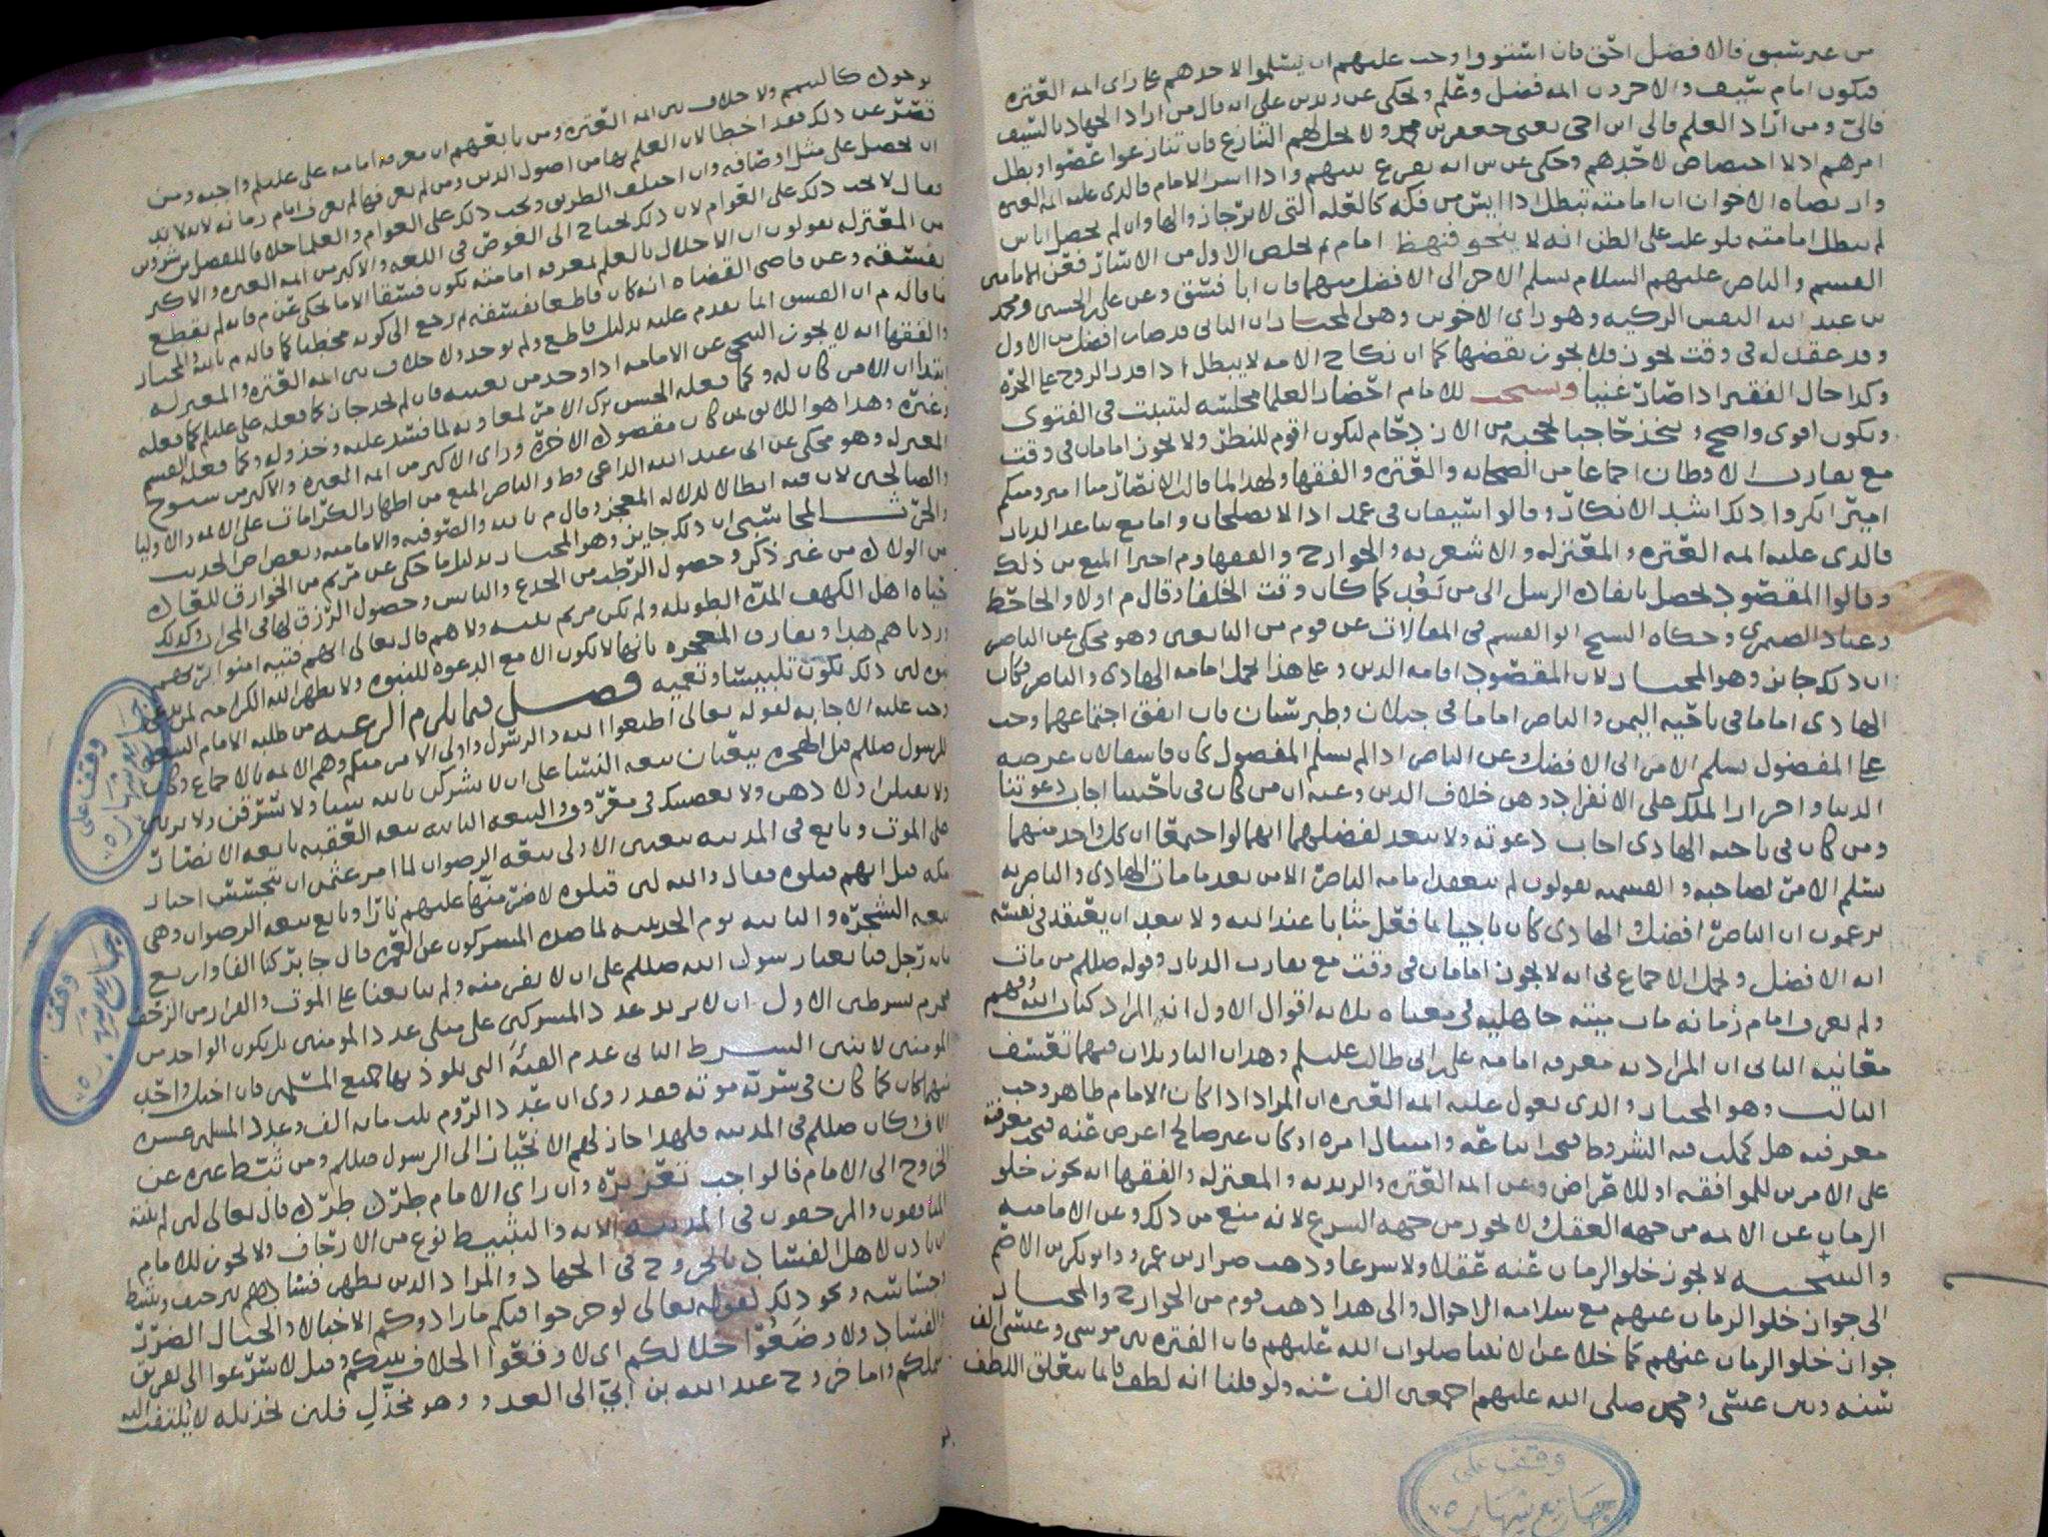 من غير سبق فالافضل احق فان استووا وجب عليهم ان يسلموا لاحدهم على راى ائمه العتره
فيكون امام سيف والاخرون ائمه فضل وعلم ويحكى عن زيد بن علي انه قال من اراد الجهاد بالسيف
فالي ومن اراد العلم فالى ابن اخى يعنى جعفر بن محمد ولا يحل لهم التنازع فان تنازعوا عصوا وبطل
امرهم اذ لا اختصاص لاحدهم وحكى عن س انه يقرع بينهم واذا اسر الامام فالذى عليه ائمه العتره
وارتضاه الاخوان ان امامته تبطل اذا ايس من فكه كالعله التى لا يرجا زوالها وان لم يحصل اياس
لم تبطل امامته فلو غلب على الظن انه لا ينجو فنهض امام ثم تخلص الاول من الاسار فعن الامامين
القسم والناصر عليهم السلام يسلم الاخر الى الافضل منهما فان ابا فسق وعن علي بن الحسين ومحمد
بن عبد الله النفس الزكيه وهو راى الاخوين وهو المختار ان الثانى قد صار افضل من الاول
وقد عقد له فى وقت يجوز فلا يجوز نقضها كما ان نكاح الامه لا يبطل اذا قدر الزوج على الحره
وكذا حال الفقير اذا صار غنيا ويستحب للامام احضار العلما مجلسه ليتثبت فى الفتوى
ويكون اقوى واصح ويتخذ حاجبا يحجبه من الازدحام ليكون اقوم للنظر ولا يجوز امامان فى وقت
مع تقارب الاوطان اجماعا من الصحابه والعتره والفقها ولهذا لما قالت الانصار منا امير ومنكم
امير انكروا ذلك اشد الانكار وقالوا سيفان فى غمد اذا لا يصلحان واما مع تباعد الديار
فالذى عليه ائمه العتره والمعتزله والاشعريه والخوارج والفقها وم اخيرا المنع من ذلك
وقالوا المقصود يحصل بانفاذ الرسل الى من بعد كما كان وقت الخلفا وقال م اولا والجاحظ
وعباد الصيمرى وحكاه الشيخ ابو القسم فى المقالات عن قوم من التابعين وهو محكى عن الناصر
ان ذلك جايز وهو المختار لان المقصود اقامه الدين وعلى هذا تحمل امامه الهادى والناصر فكان
الهادى اماما فى ناحيه اليمن والناصر اماما فى جيلان وطبرستان فان اتفق اجتماعهما وجب
على المفضول تسليم الامر الى الافضل وعن الناصر اذا لم يسلم المفضول كان فاسقا لان غرضه
الدنيا واحراز الملك على الانفراد وهو خلاف الدين وعنه ان من كان فى ناحيتنا اجاب دعوتنا
ومن كان فى ناحيه الهادى اجاب دعوته ولا يبعد لفضلهما انهما لو اجتمعا ان كل واحد منهما
يسلم الامر لصاحبه والقسميه يقولون لم ينعقد امامه الناصر الا من بعد ما مات الهادى والناصريه
يزعمون ان الناصر افضل والهادى كان ناجيا بما فعل مثابا عند الله ولا يبعد ان يعتقد فى نفسه
انه الافضل ويحمل الاجماع فى انه لا يجوز امامان فى وقت مع تقارب الديار وقوله صللم من مات
ولم يعرف امام زمانه مات ميته جاهليه فى معناه ثلاثه اقوال الاول انه المراد كتاب الله وفهم
معانيه الثانى ان المراد به معرفه امامه على بن ابى طالب عليلم وهذان التاويلان فيهما تعسف
الثالث وهو المختار والذى يعول عليه ائمه العتره ان المراد اذا كان الامام ظاهر وجب
معرفته هل كملت فيه الشروط فيجب اتباعه وامتثال امره او كان غير صالح اعرض عنه فتجب معرفته
على الامرين للموافقه او للاعراض وعن ائمه العتره والزيديه والمعتزله والفقها انه يجوز خلو
الزمان عن الائمه من جهه العقل ولا يجوز من جهه الشرع لانه منع من ذلك وعن الاماميه
لا يجوز خلو الزمان عنه عقلا ولا شرعا وذهب ضرار بن عمرو وابو بكر بن الاصم
الى جواز خلو الزمان عنهم مع سلامه الاحوال والى هذا ذهب قوم من الخوارج والمختار
جواز خلو الزمان عنهم كما خلا عن الانبيا صلوات الله عليهم فان الفتره بين موسى وعيسى الف
سنه وبين عيسى ومحمد صلى الله عليهم اجمعين الف سنه ولو قلنا انه لطف فانما يتعلق اللطف
وقف على
جامع شهاره
ولا خلاف بين ائمه العتره ومن تابعهم ان معرفه امامه على عليلم واجبه ومن
قصر عن ذلك فقد اخطا لان العلم بها من اصول الدين ومن لم يعرفها لم يعرف امام زمانه لانه لا بد
ان يحصل على مثل اوصافه وان اختلف الطريق ويجب ذلك على العوام والعلما خلافا
فقال لا يجب ذلك على العوام لان ذلك يحتاج الى الغوص فى اللغه والاكثر من ائمه العتره والاكثر
من المعتزله يقولون ان الاخلال بالعلم بمعرفه امامته يكون فسقا الا ما يحكى عن م فانه لم يقطع
بفسقه وعن قاضى القضاه انه كان قاطعا بفسقه ثم رجع الى كونه مخطيا كما قاله م بالله والمختار
ما قاله م ان الفسق انما يقدم عليه بدليل قاطع ولم يوجد ولا خلاف بين ائمه العتره والمعتزله
والفقها انه لا يجوز التنحى عن الامامه اذا وجد من يعينه فان لم يجد جاز كما فعله على عليلم
وكما فعله الحسن ترك الامر لمعاويه لما فسد عليه وخذلوه وكما فعله القسم
وغيره وهذا هو اللايق لمن كان مقصوده الاخره وراى الاكثر من ائمه العتره والاكثر من شيوخ
المعتزله وهو محكى عن ابى عبد الله الداعى وط والناصر المنع من اظهار الكرامات على الائمه والاوليا
والصالحين لان فيه ابطالا لدلاله المعجز وقال م بالله والصوفيه والاماميه وبعض اصحاب الحديث
ان ذلك جايز وهو المختار بدليل ما حكى عن مريم من الخوارق للعاده
من الولاد من غير ذكر وحصول الرطب من الجذع وحصول الرزق لها فى المحراب وكذلك
حياه اهل الكهف المده الطويله ولم تكن مريم نبيه ولا هم قال تعالى انهم فتيه امنوا بربهم
وزدناهم هدا وتفارق المعجزه بانها لا تكون الا مع الدعوه للنبوه ولا يظهر الله الكرامه لمن
لان ذلك يكون تلبيسا وتعميه فصل فيما يلزم الرعيه من طلبه الامام البيعه
وجب عليه الاجابه لقوله تعالى اطيعوا الله والرسول واولى الامر منكم وهم الائمه بالاجماع وكان
للرسول صللم قبل الهجره بيعتان بيعه النسا على ان لا يشركن بالله شيا ولا يسرقن ولا يزنين
ولا يقتلن اولادهن ولا يعصينك فى معروف والبيعه الثانيه بيعه العقبه بايعه الانصار
على الموت وبايع فى المدينه بيعتين الاولى بيعه الرضوان لما امر عثمن ان يتجسس اخبار
مكه قيل انهم قتلوه فقال والله لين قتلوه لاضرمنها عليهم نارا وبايع بيعه الرضوان وهى
بيعه الشجره والثانيه يوم الحديبيه لما صده المشركون عن العمره قال جابر كنا الفا واربع
مايه رجل فبايعنا رسول الله صللم على ان لا نفر منه ولم نبايعنا على الموت والفرار من الزحف
محرم بشرطين الاول ان لا يزيد عدد المشركين على مثلى عدد المومنين بل يكون الواحد من
المومنين لاثنين الشرط الثانى عدم الفئه التى يلوذ بها جميع المسلمين فان اختل واحد
منهما كان كما كان فى سريه موته فقد روى ان عدد الروم ثلث مايه الف وعدد المسلمين عشره
الاف وكان صللم فى المدينه فلهذا جاز لهم الانحياز الى الرسول صللم ومن ثبط غيره عن
الخروج الى الامام فالواجب تعزيره وان راى الامام طرده طرده قال تعالى لين لم ينته
المنافقون والمرجفون فى المدينه الايه والتثبيط نوع من الارجاف ولا يجوز للامام
ان ياذن لاهل الفساد بالخروج فى الجهاد والمراد الذين يظهر فسادهم بترجيف وتثبيط
ونحو ذلك لقوله تعالى لو خرجوا فيكم ما زادوكم الا خبالا والخبال الضرر
والفساد ولاوضعوا خلالكم اى لاوقعوا الخلاف بينكم وقيل لاسرعوا الى تفريق
واما خروج عبد الله بن ابي الى العدو وهو مخذل فلين تخذيله لا يلتفت اليه
وقف على
جامع شهاره
وقف
جامع شهاره